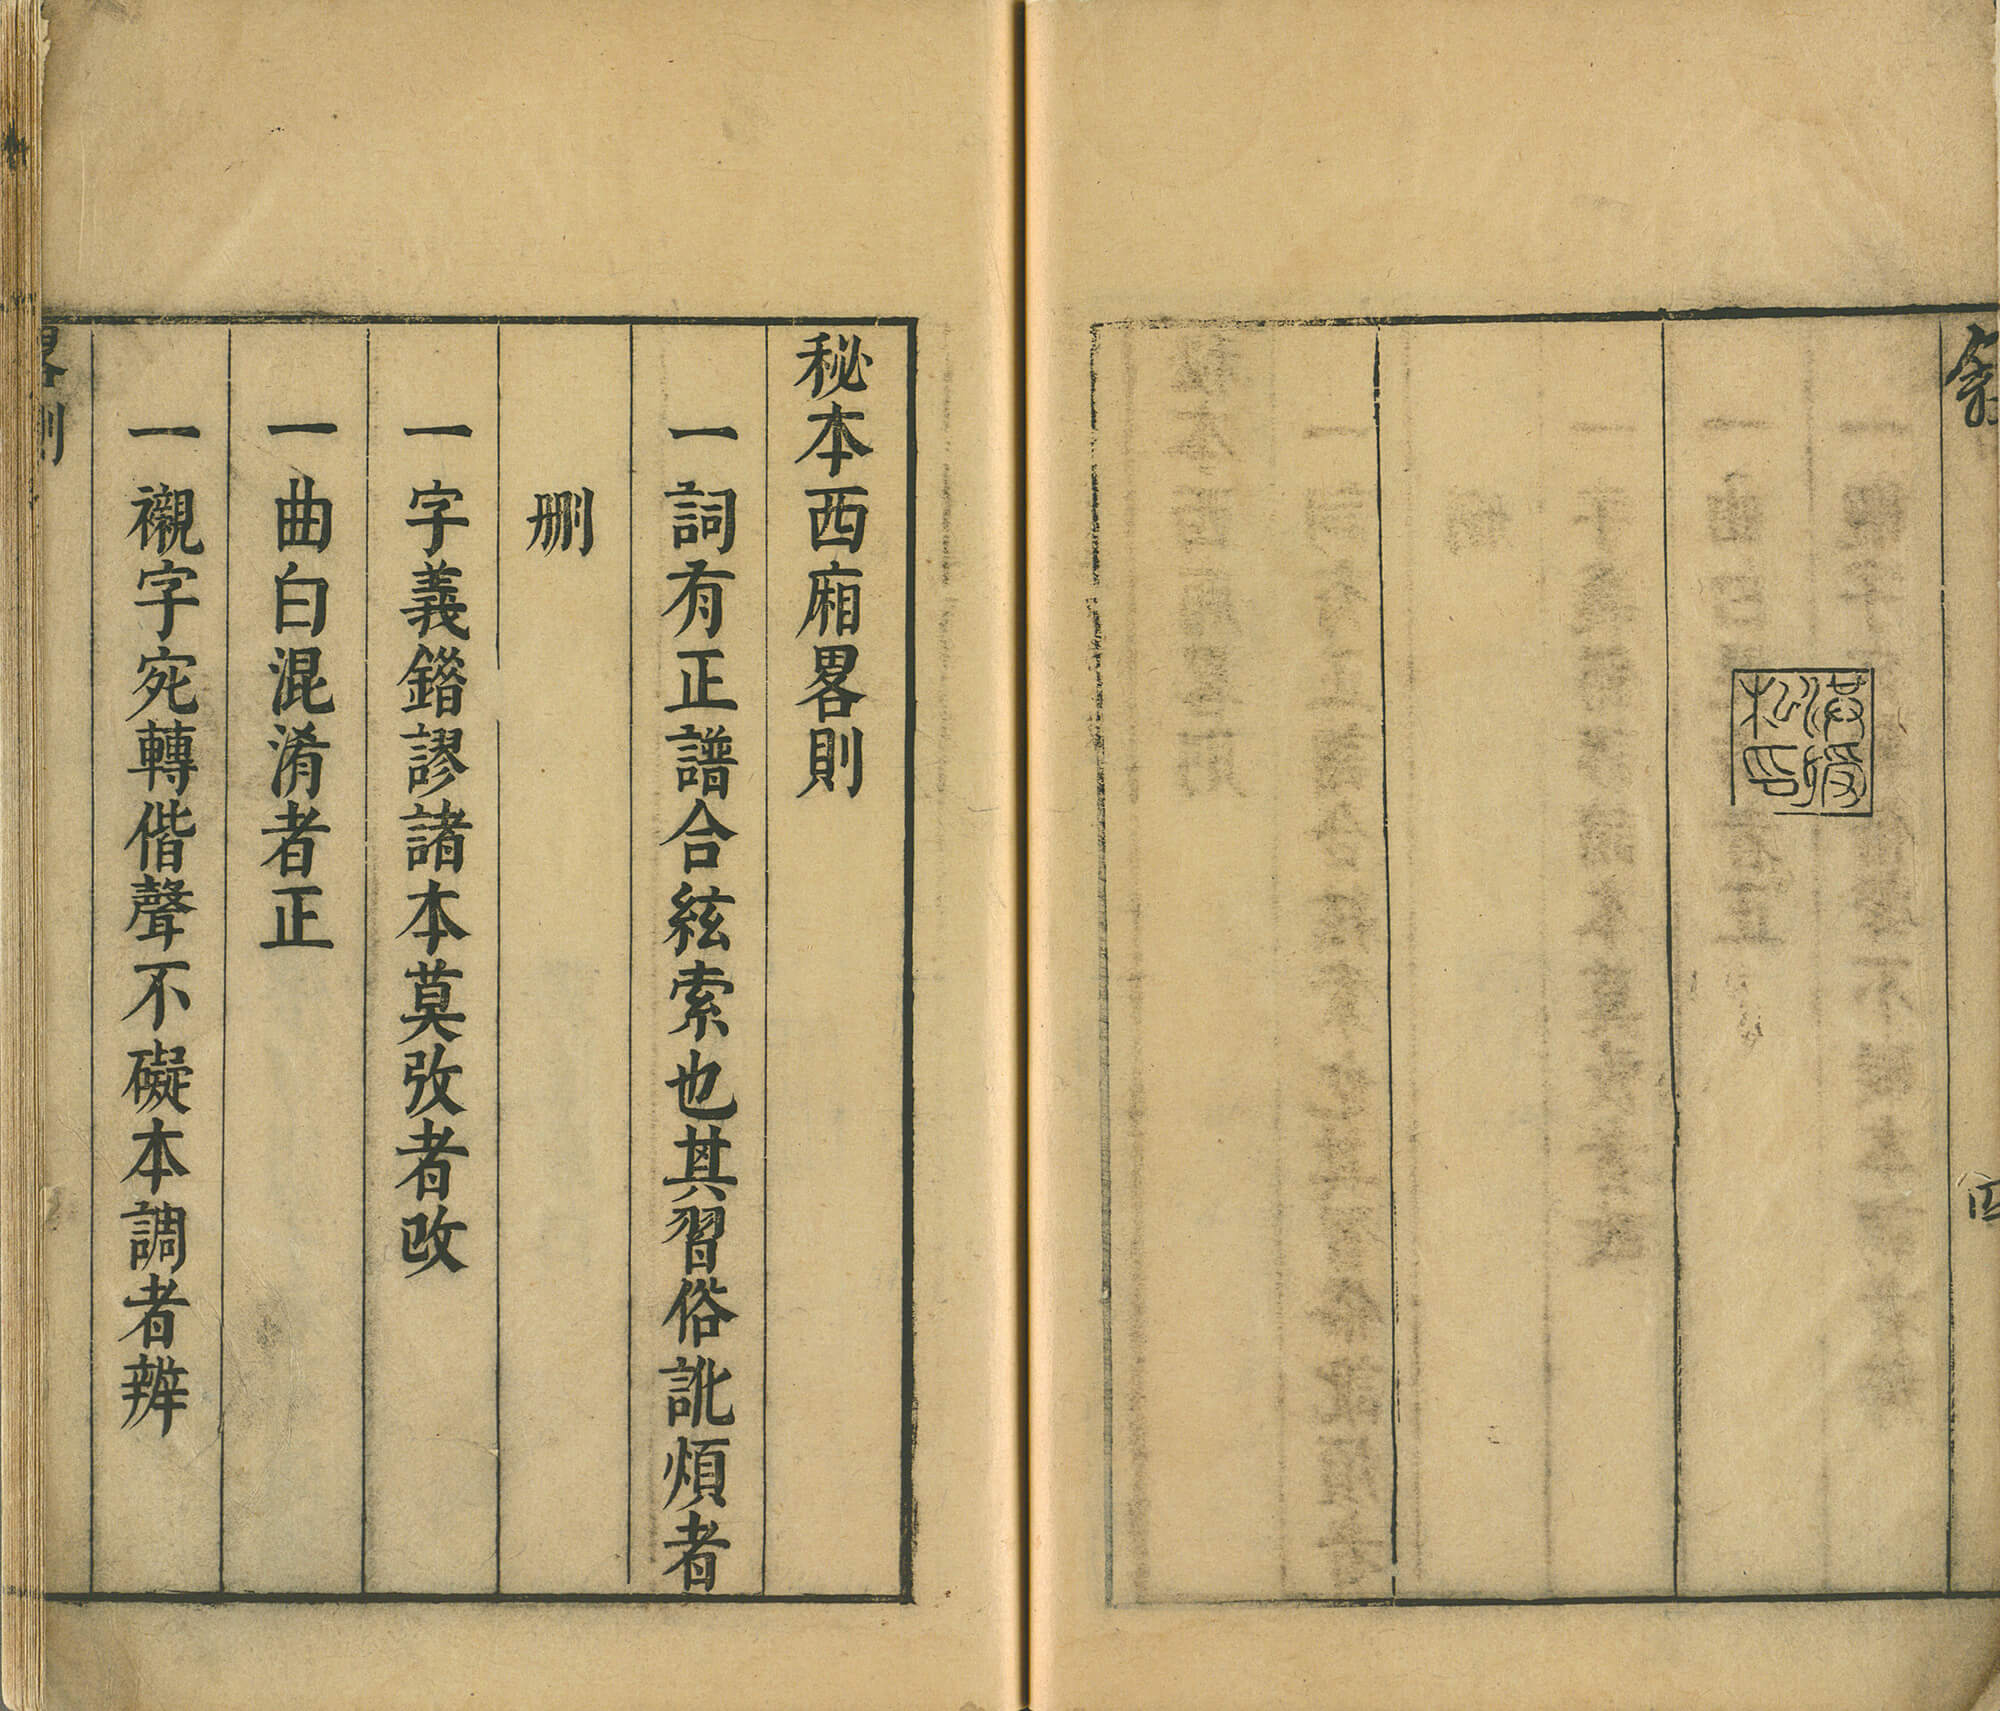 秘本西廂畧則
一詞有正譜合絃索也其習俗訛煩者
刪
一字義錯謬諸本莫攷者改
一曲白混淆者正
一襯字宛轉偕聲不礙本調者辨
畧則